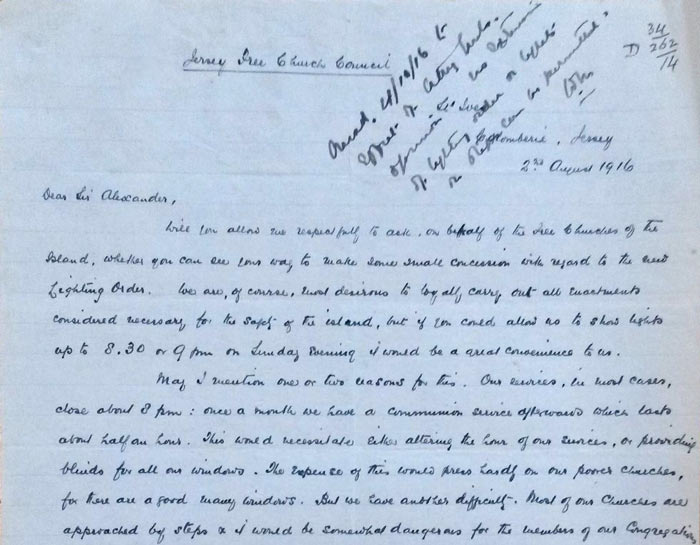 34
262
D /14
Jersey Free Church Council
Colomberie, Jersey
2nd August 1916
Dear Sir Alexander,
Will you allow me respectfully to ask, on behalf of the Free Churches of the
Island, whether you can see your way to make some small concession with regard to the new
Lighting Order. We are, of course, most desirous to loyally carry out all enactments
considered necessary for the safety of the island, but if you could allow us to show lights
up to 8.30 or 9 pm on Sunday Evening it would be a great convenience to us.
May I mention one or two reasons for this. Our services, in most cases,
close about 8 pm: once a month we have a communion service afterwards which lasts
about half an hour. This would necessitate either altering the hour of our services, or providing
blinds for all our windows. The expense of this would press hardly on our poorer churches,
for there are a good many windows. But we have another difficulty. Most of our Churches are
approached by steps & it would be somewhat dangerous for the members of our Congregation